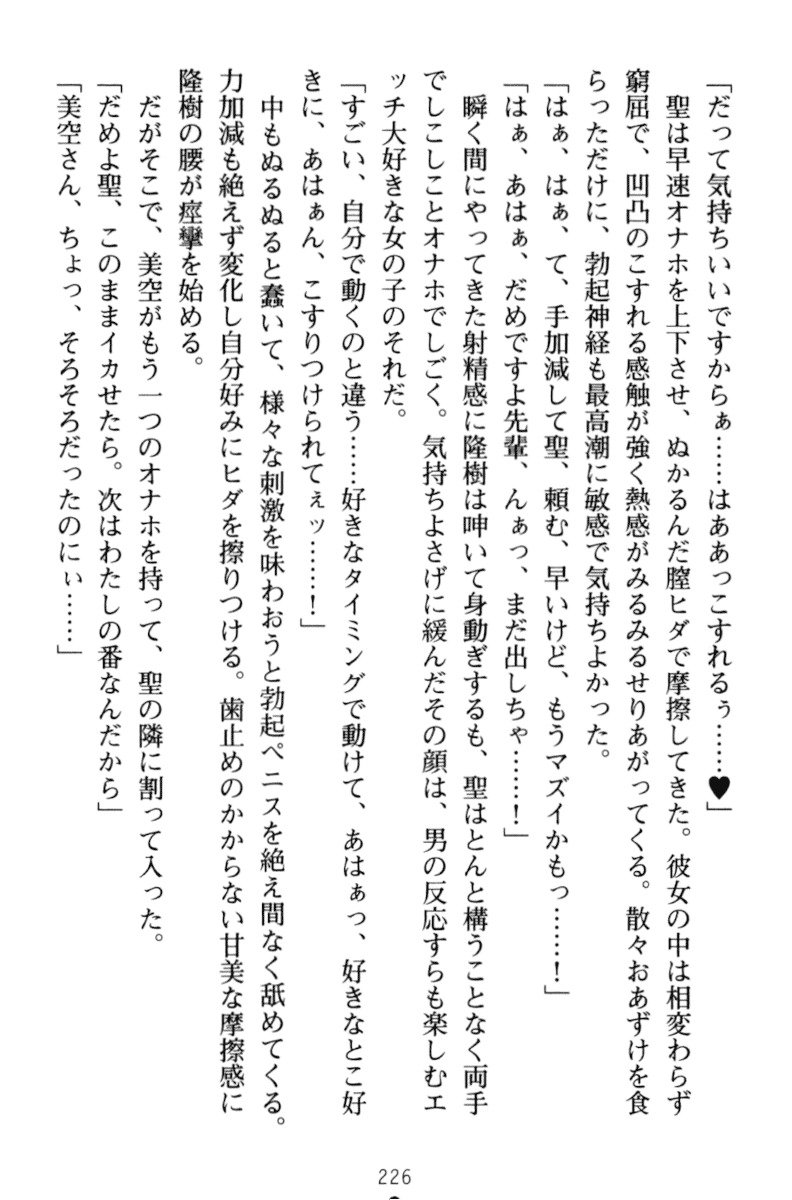 「だって気持ちいいですからぁ……はああっこすれるぅ……♥」
聖は早速オナホを上下させ、ぬかるんだ膣ヒダで摩擦してきた。彼女の中は相変わらず
窮屈で、凹凸のこすれる感触が強く熱感がみるみるせりあがってくる。散々おあずけを食
らっただけに、勃起神経も最高潮に敏感で気持ちよかった。
「はぁ、はぁ、て、手加減して聖、頼む、早いけど、もうマズイかもっ……！」
「はぁ、あはぁ、だめですよ先輩、んぁっ、まだ出しちゃ……！」
瞬く間にやってきた射精感に隆樹は呻いて身動ぎするも、聖はとんと構うことなく両手
でしこしことオナホでしごく。気持ちよさげに緩んだその顔は、男の反応すらも楽しむエ
ッチ大好きな女の子のそれだ。
「すごい、自分で動くのと違う……好きなタイミングで動けて、あはぁっ、好きなとこ好
きに、あはぁん、こすりつけられてぇッ……！」
中もぬるぬると蠢いて、様々な刺激を味わおうと勃起ペニスを絶え間なく舐めてくる。
力加減も絶えず変化し自分好みにヒダを擦りつける。歯止めのかからない甘美な摩擦感に
隆樹の腰が痙攣を始める。
だがそこで、美空がもう一つのオナホを持って、聖の隣に割って入った。
「だめよ聖、このままイカせたら。次はわたしの番なんだから」
「美空さん、ちょっ、そろそろだったのにぃ……」
226